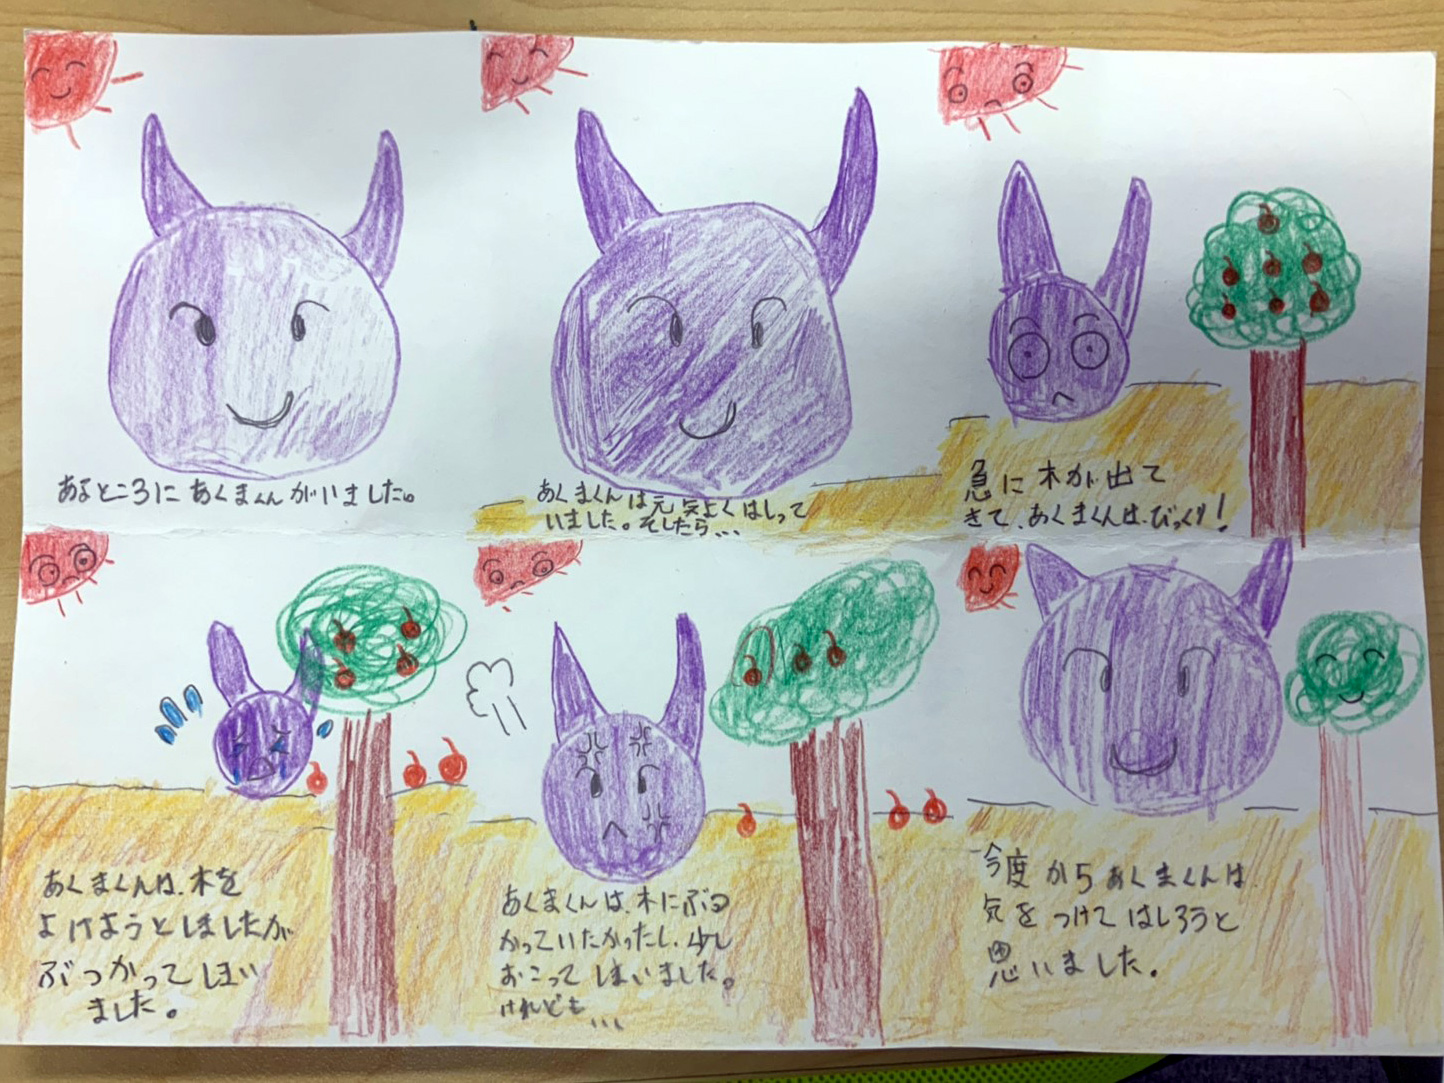 あるところにあくまくんがいました。
あくまくんは元気よくはしって
いました。そしたら...
急に木が出て
きて、あくまくんは、びっくり!
あくまくんは、木を
よけようとしましたが
ぶつかってしまい
ました。
あくまくんは、木にぶつ
かっていたかったし、少し
おこってしまいました。
けれども...
今度からあくまくんは
気をつけてはしろうと
思いました。